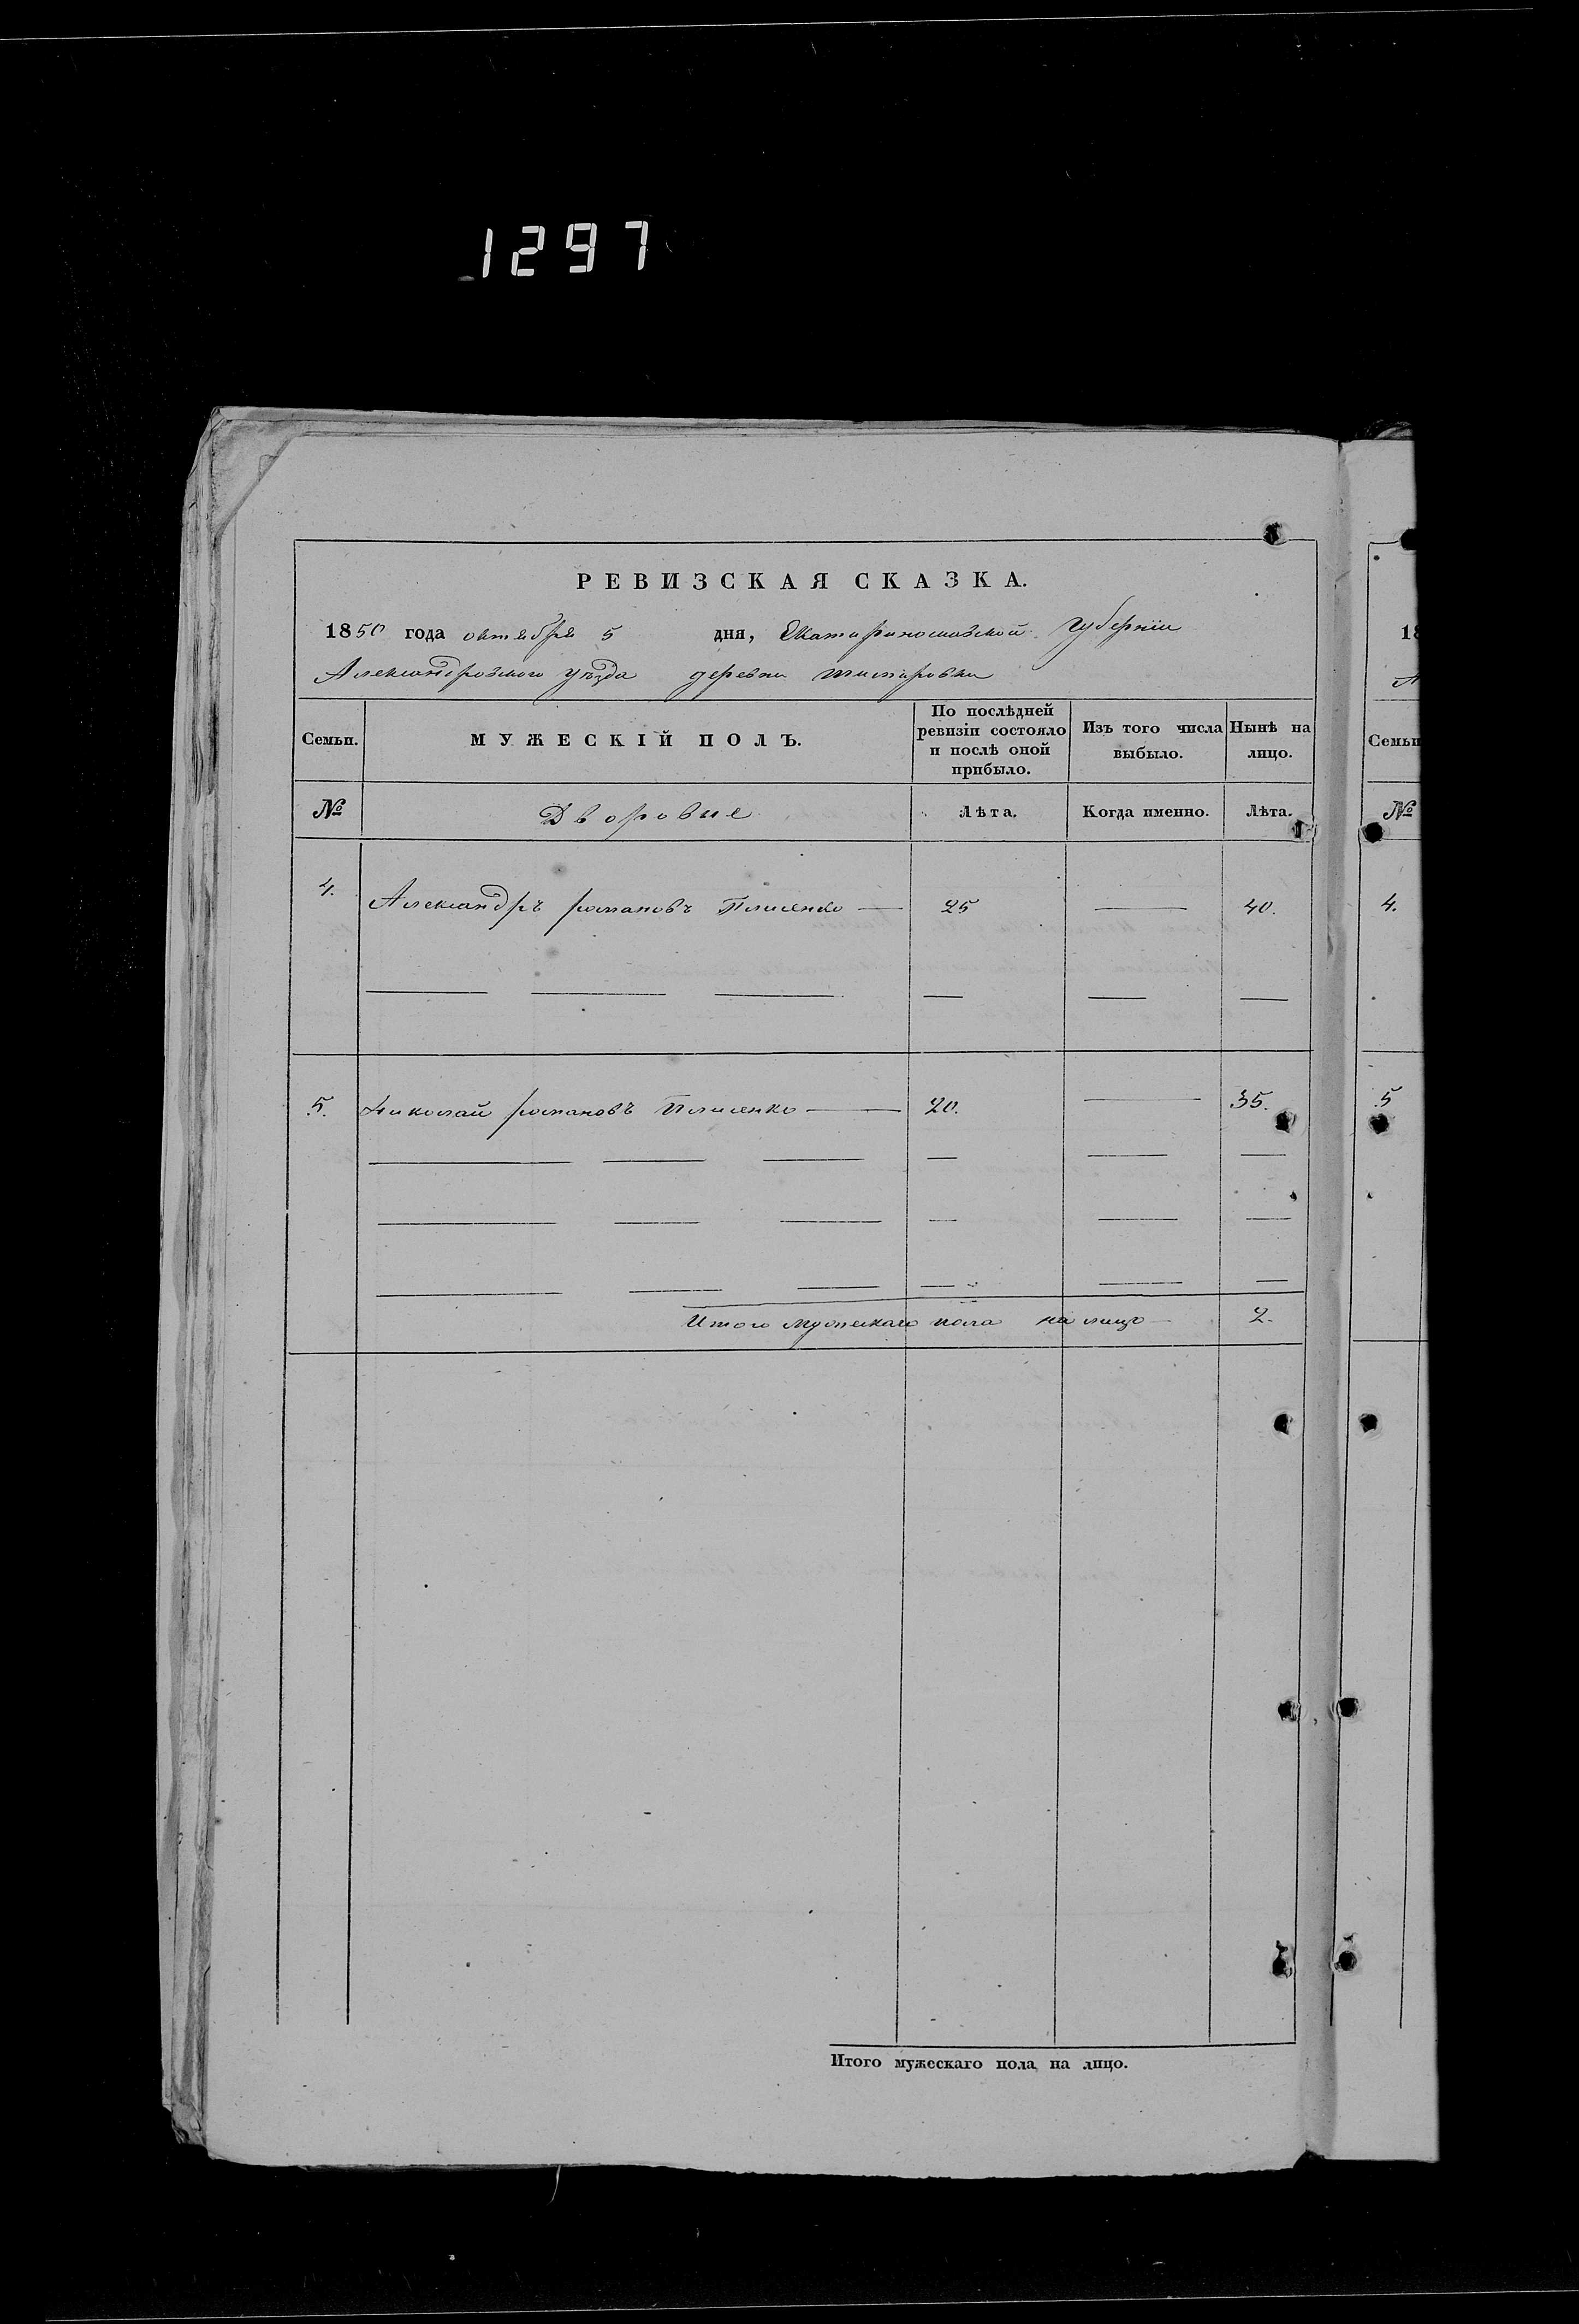 1297
РЕВИЗСКАЯ СКАЗКА.
1850 года октября 5 дня, Екатеринославской Губерніи
Александровского уѣзда деревни
Семьи.
МУЖЕСКІЙ ПОЛЪ.
По послѣдней ревизіи состояло и послѣ оной прибыло.
Изъ того числа выбыло.
Нынѣ на лицо.
№
Дворовые
Лѣта.
Когда именно.
Лѣта.
4. Александръ романовъ — 25 — 40.
5. Николай романовъ — 20. — 35.
Итого мужескаго пола на лицо — 2.
Итого мужескаго пола на лицо.
18
Семьи
№
4.
5